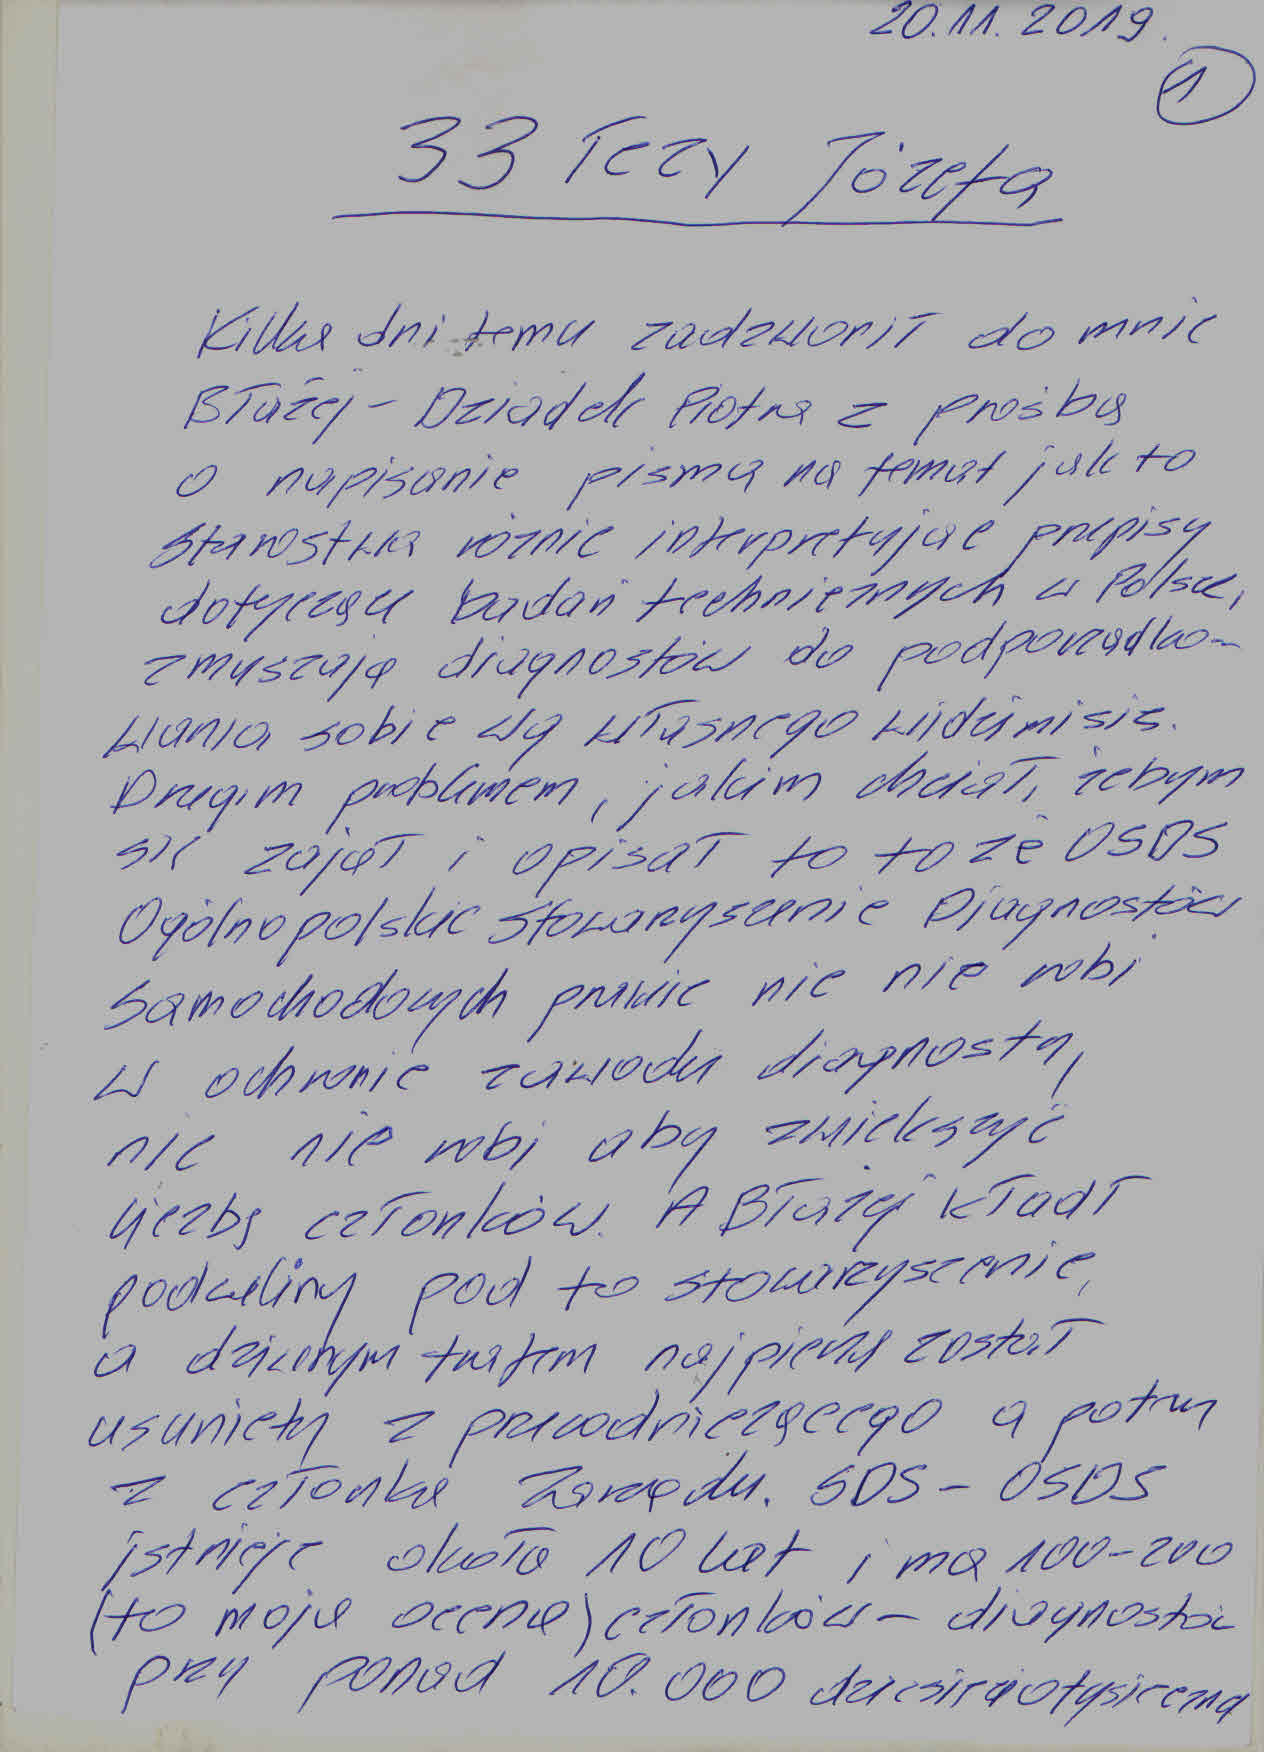 20.11.2019.
1
33 Tezy Józefa
Kilka dni temu zadzwonił do mnie
Błażej - Dziadek Piotra z prośbą
o napisanie pisma na temat jak to
starostwa różnie interpretując przepisy
dotyczące badań technicznych w Polsce,
zmuszają diagnostów do podporządko-
wania sobie wg własnego widzimisię.
Drugim problemem, jakim chciał, żebym
się zajął i opisał to to że OSDS
Ogólnopolskie Stowarzyszenie Diagnostów
Samochodowych prawie nic nie robi
w ochronie zawodu diagnosty,
nic nie robi aby zwiększyć
liczbę członków. A Błażej kładł
podwaliny pod to stowarzyszenie,
a dziwnym trafem najpierw został
usunięty z przewodniczącego a potem
z członka Zarządu. SDS - OSDS
istnieje około 10 lat i ma 100-200
(to moja ocena) członków - diagnostów
przy ponad 10.000 dziesięciotysięczną